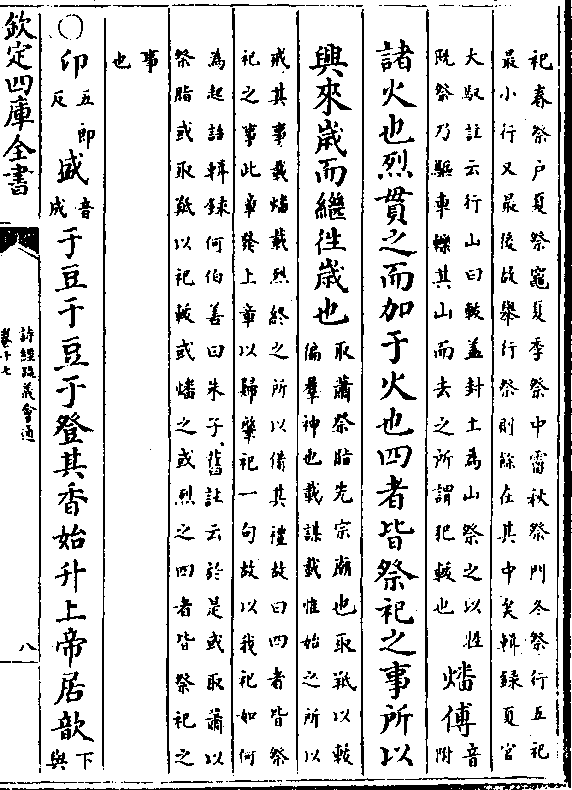 祀春祭户夏祭竈夏季祭中霤秋祭門冬祭行五祀
最小行又最後故舉行祭則餘在其中矣輯録夏官
大馭註云行山曰軷盖封土為山祭之以牲
既祭乃驅車轢其山而去之所謂犯軷也
燔傅
音附
諸火也烈貫之而加于火也四者皆祭祀之事所以
興來歲而繼徃歲也
取蕭祭脂先宗廟也取羝以軷
偏羣神也載謀載惟始之所以
戒其事載燔載烈終之所以備其禮故曰四者皆祭
祀之事此章發上章以歸肇祀一句故以我祀如何
為起語輯録何伯善曰朱子舊註云於是或取蕭以
祭脂或取羝以祀軷或燔之或烈之四者皆祭祀之
事
也
○卬
五郎
反
盛
音
成
于豆于豆于登其香始升上帝居歆
下
與
欽定四庫全書
詩經疏義會通
卷十七
八